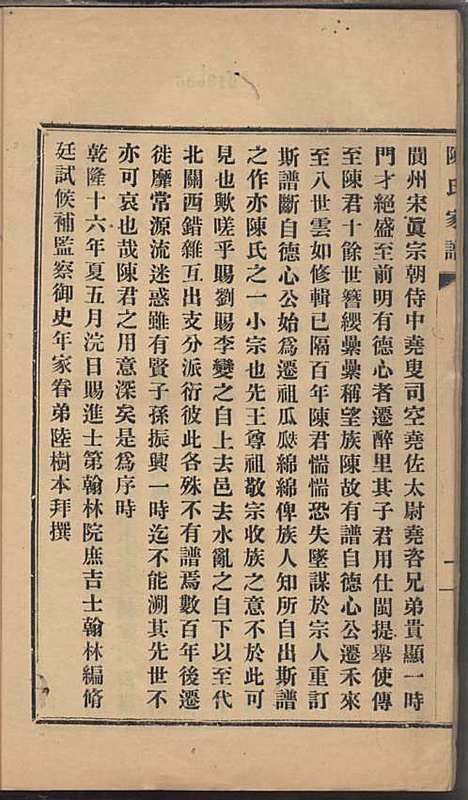 陳氏家譜
一
閬州宋眞宗朝侍中堯叟司空堯佐太尉堯咨兄弟貴顯一時
門才絕盛至前明有德心者遷醉里其子君用仕閩提舉使傳
至陳君十餘世簪纓纍纍稱望族陳故有譜自德心公遷禾來
至八世雲如修輯已隔百年陳君惴惴恐失墜謀於宗人重訂
斯譜斷自德心公始爲遷祖瓜瓞綿綿俾族人知所自出斯譜
之作亦陳氏之一小宗也先王尊祖敬宗收族之意不於此可
見也歟嗟乎賜劉賜李變之自上去邑去水亂之自下以至代
北關西錯雜互出支分派衍彼此各殊不有譜焉數百年後遷
徙靡常源流迷惑雖有賢子孫振興一時迄不能溯其先世不
亦可哀也哉陳君之用意深矣是爲序時
乾隆十六年夏五月浣日賜進士第翰林院庶吉士翰林編脩
廷試候補監察御史年家眷弟陸樹本拜撰